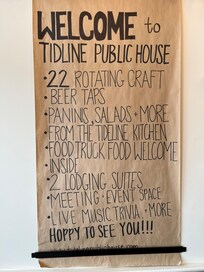 WELCOME to
TIDLINE PUBLIC HOUSE
• 22 ROTATING CRAFT
• BEER TAPS
• PANINIS, SALADS + MORE
FROM THE TIDLINE KITCHEN
• FOOD TRUCK FOOD WELCOME
INSIDE
• 2 LODGING SUITES
• MEETING + EVENT SPACE
• LIVE MUSIC TRIVIA + MORE
HOPPY TO SEE YOU!!!